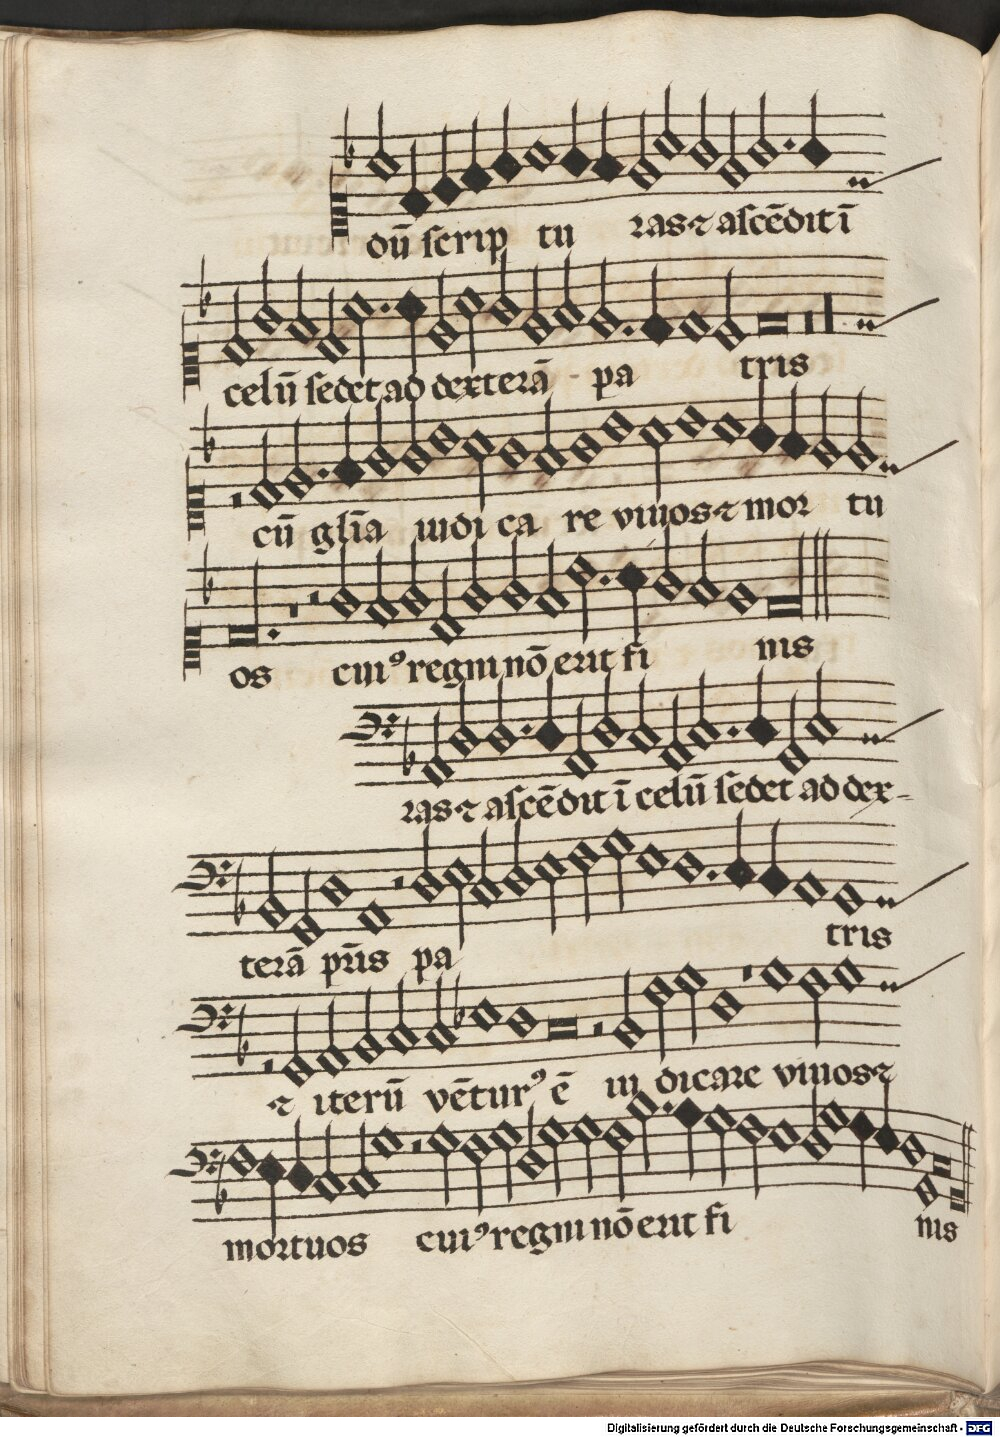 dū scrip tu ras ⁊ ascēdit ī
celū sedet ad dexterā pa tris
cū gl̄ia iudi ca re viuos ⁊ mor tu
os cuiꝰ regni nō erit fi nis
ras ⁊ ascēdit ī celū sedet ad dex-
terā pr̄is pa tris
⁊ iterū vētur⁹ ē iu dicare viuos ⁊
mortuos cuiꝰ regni nō erit fi nis
Digitalisierung gefördert durch die Deutsche Forschungsgemeinschaft - DFG